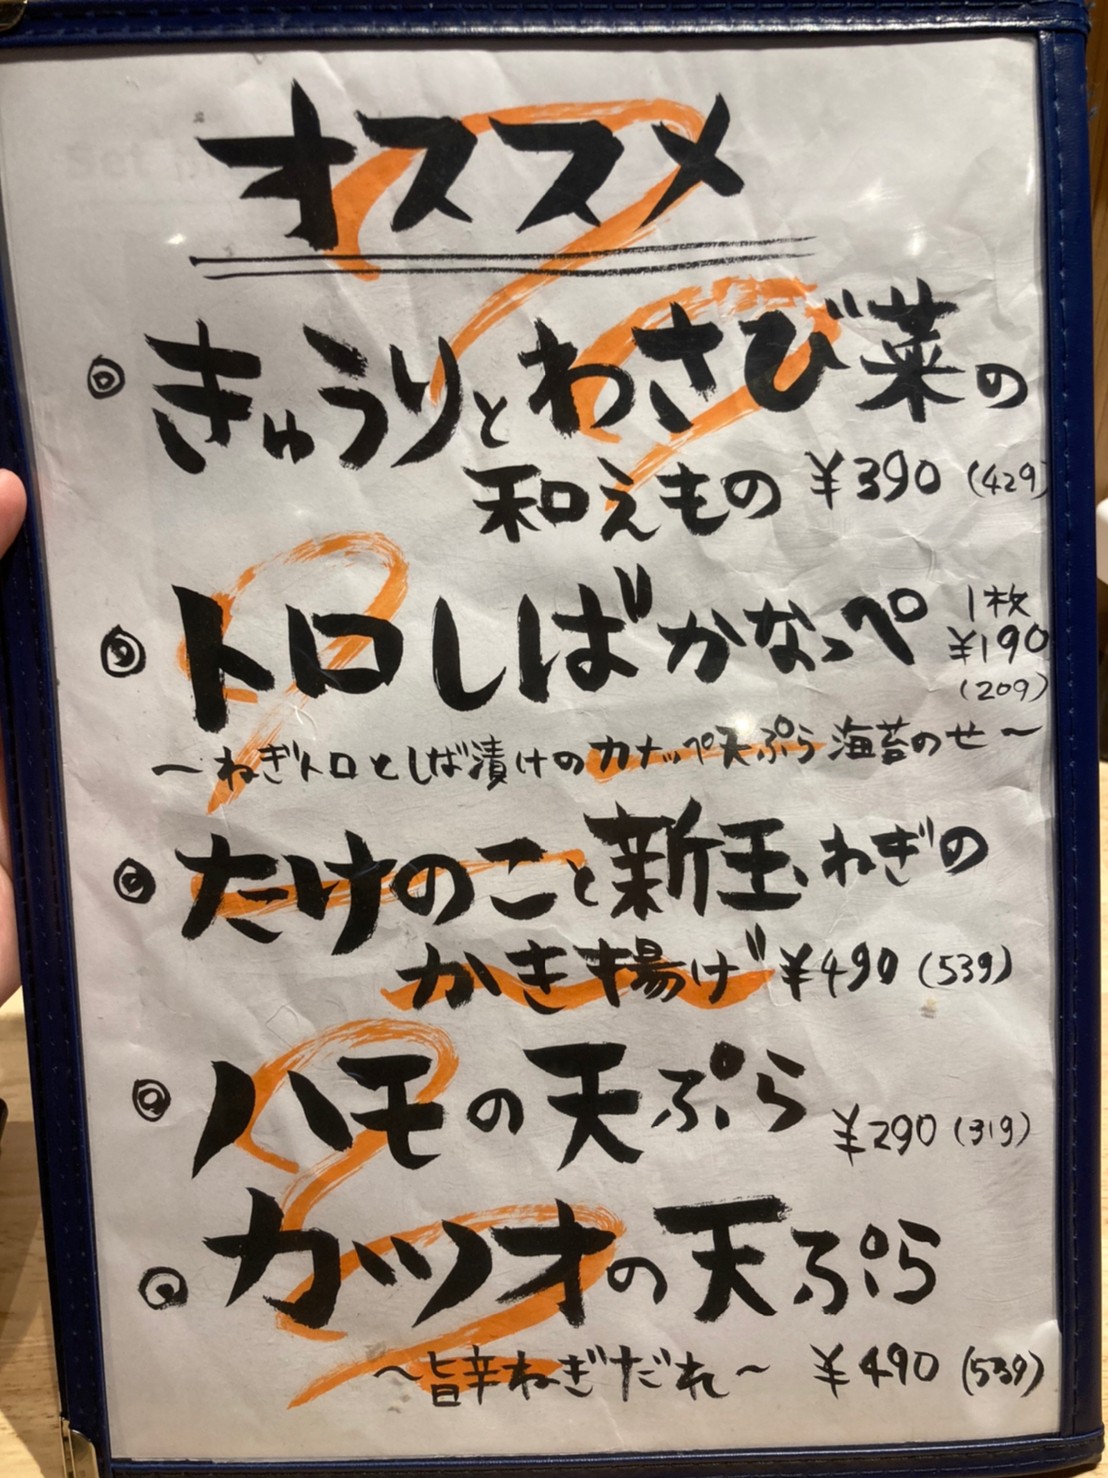 オススメ
◎きゅうりとわさび菜の
和えもの ¥390 (429)
◎トロしばかなっペ 1枚
¥190
(209)
～ねぎトロとしば漬けのカナッペ天ぷら海苔のせ～
◎たけのこと新玉ねぎの
かき揚げ ¥490 (539)
◎ハモの天ぷら ¥290 (319)
◎カツオの天ぷら
～旨辛ねぎだれ～ ¥490 (539)